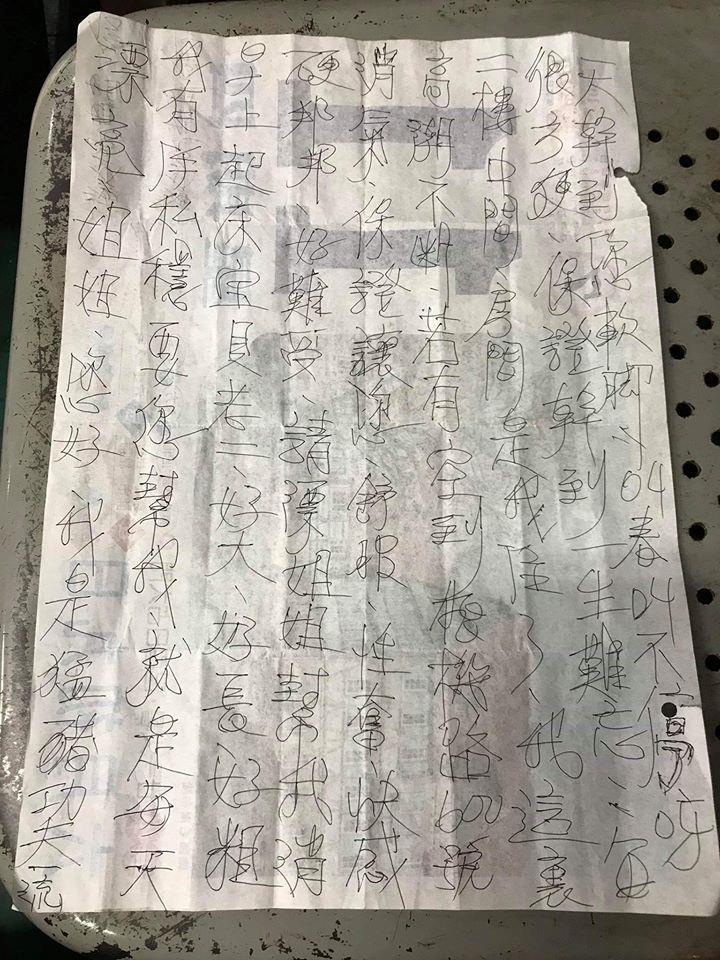 漂亮姐姐、您好 我是猛豬功夫一流
我有件私穩要您幫我就是每天
早上起床宝貝老二、好大、好長、好粗
硬邦邦、好難受、請漂姐姐幫我消
消氣、保證讓您、舒服、性奮、快感
高潮不斷、若有空到 機路600號
二樓中間、房間 是我住 我這裏
很多 保證幹到一生難忘、每
天幹到您軟脚、叫春叫不停呀